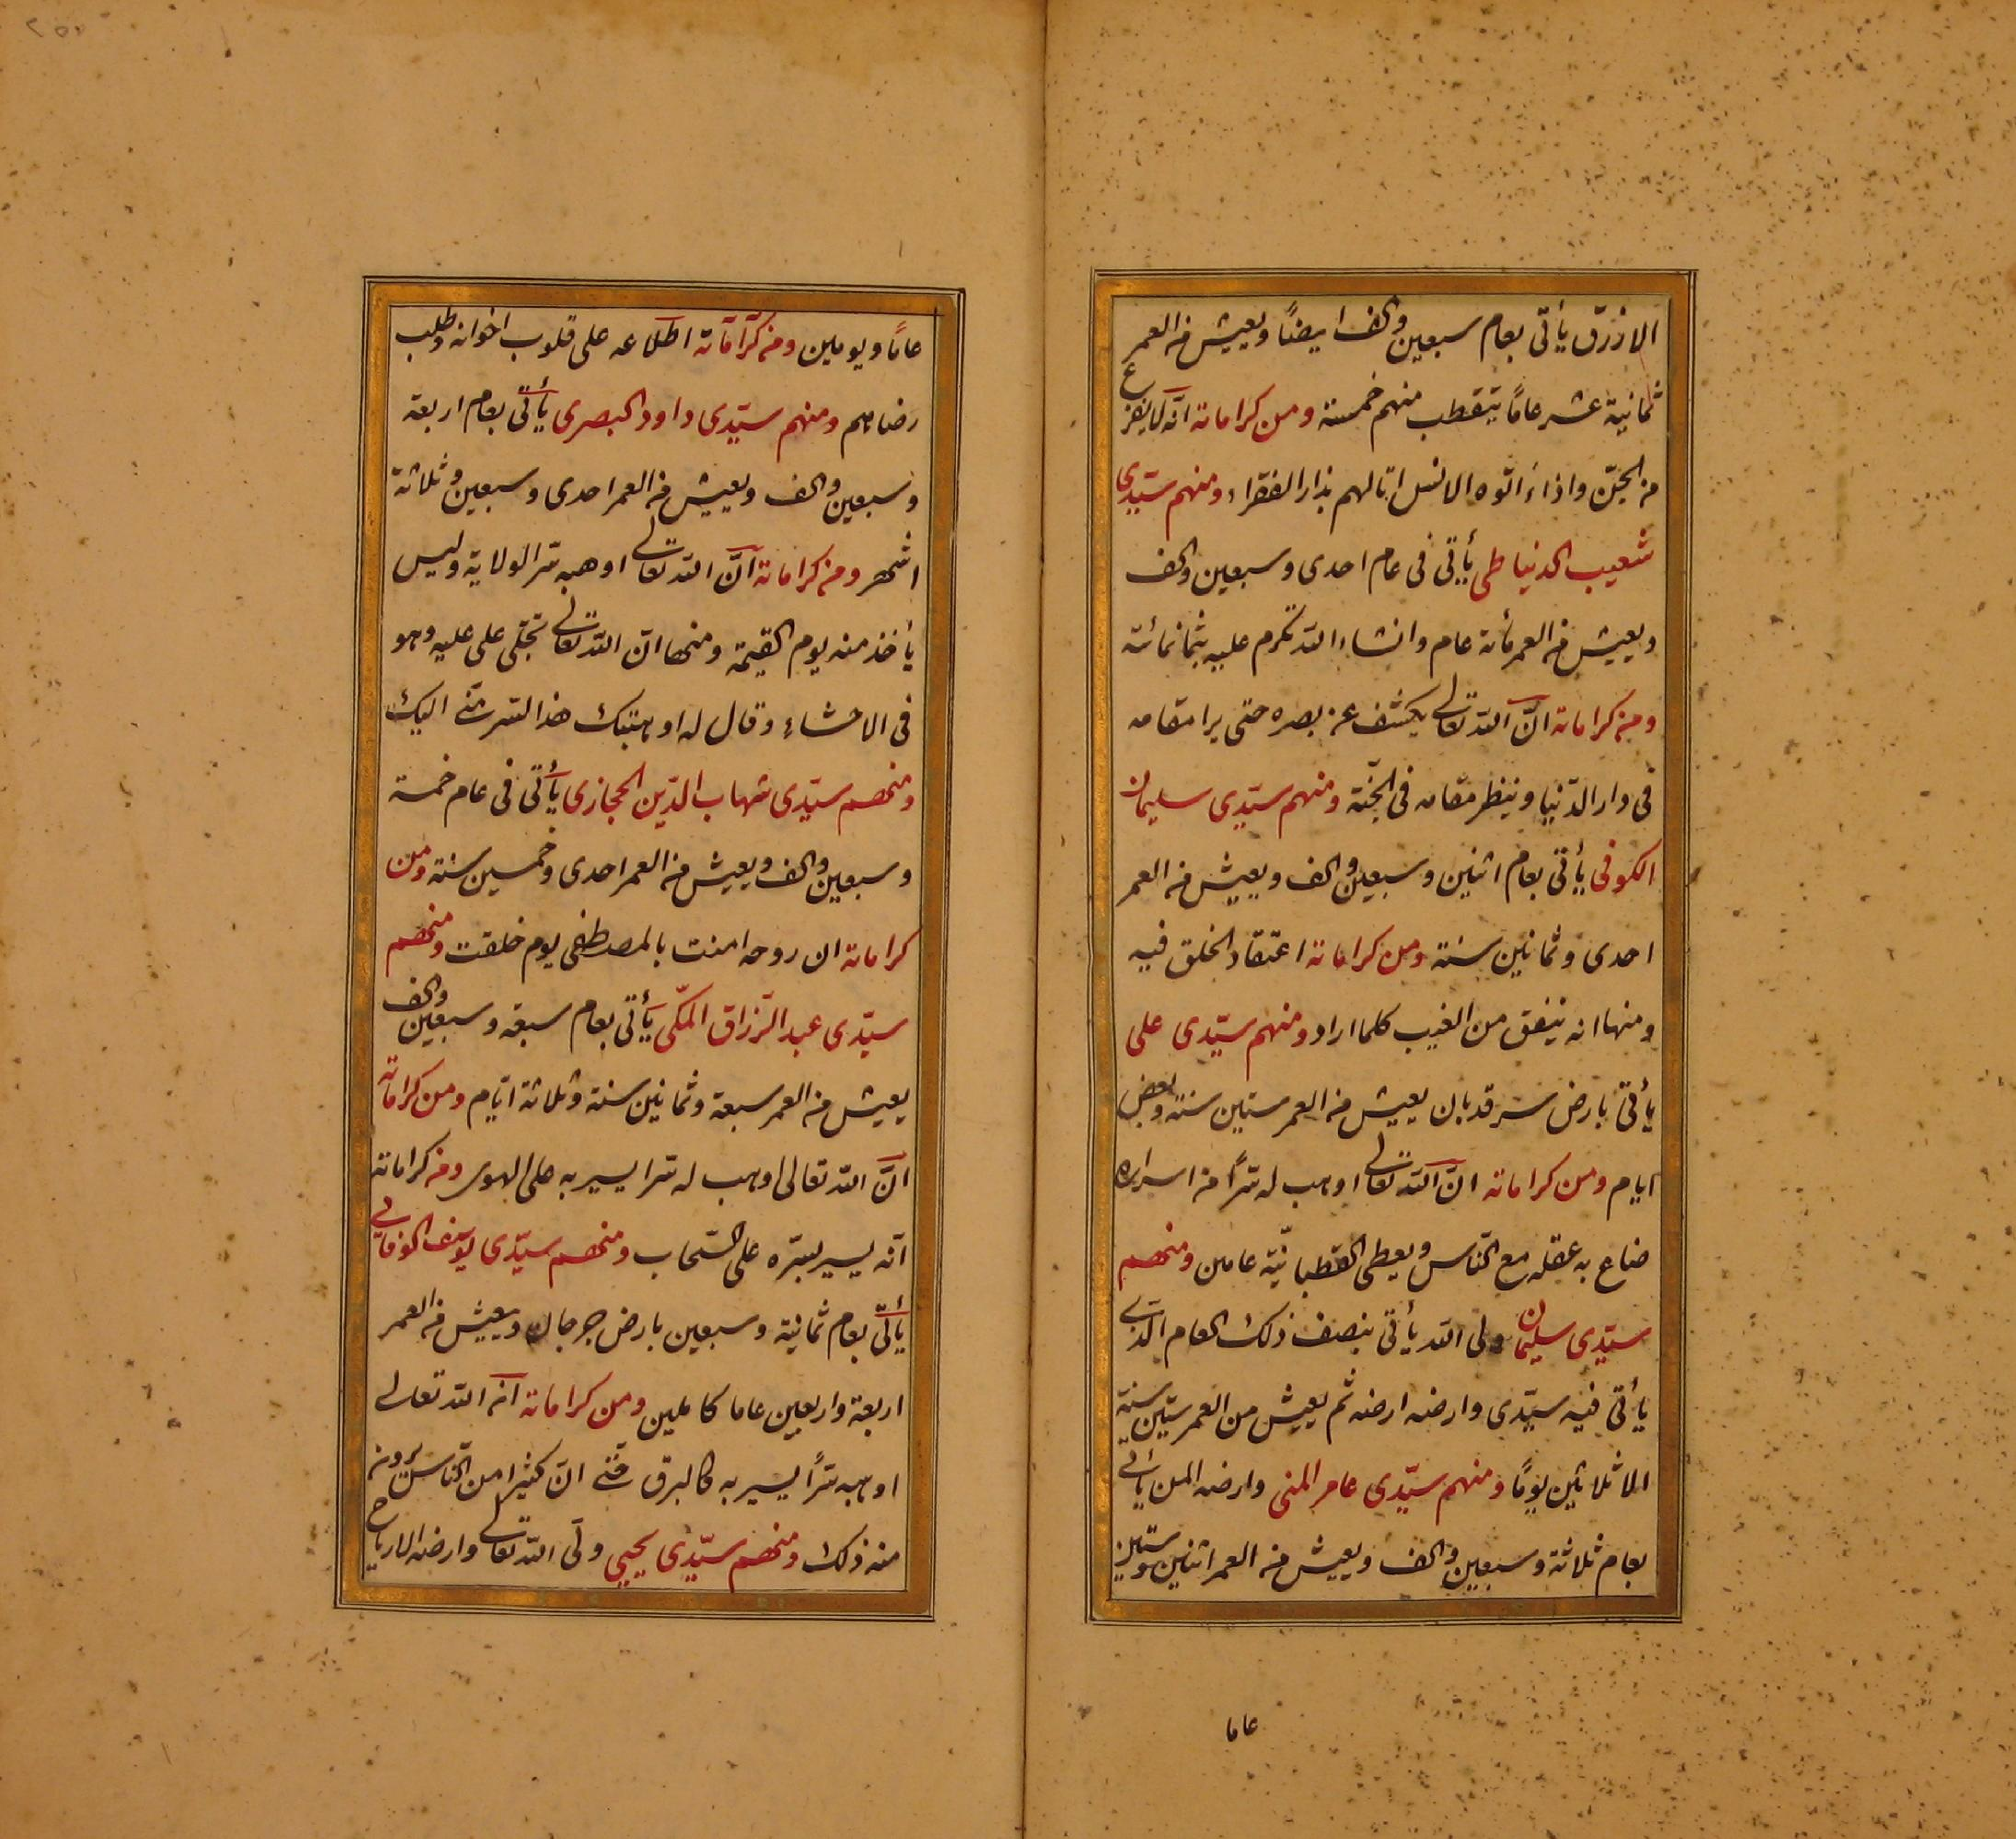 الازرق يأتى بعام سبعين والف ايضاً ويعيش من العمر
ثمانية عشر عاماً يتقطب منهم خمسة ومن كراماته انّه لا يفزع
من الجنّ واذا أتوه الانس اتالهم بذار الفقراء ومنهم سيّدى
شعيب الدنياطى يأتى فى عام احدى وسبعين والف
ويعيش من العمر مأة عام وانشاء الله تكرم عليه بثمانمائة
ومن كراماته انّ الله تعالى يكشف عن بصره حتى يرا مقامه
فى دار الدّنيا وينظر مقامه فى الجنّة ومنهم سيّدى سليمان
الكوفى يأتى بعام اثنين وسبعين والف ويعيش من العمر
احدى وثمانين سنة ومن كراماته اعتقاد الخلق فيه
ومنها انه ينفق من الغيب كلما اراد ومنهم سيّدى على
يأتى بارض سرقدبان يعيش من العمر ستين سنة وبعض
ايام ومن كراماته انّ الله تعالى اوهب له سرّاً من اسراره
ضاع به عقله مع النّاس ويعطى القطبانيّة عامين ومنهم
سيّدى سليمان ولى الله يأتى بنصف ذلك العام الذى
يأتى فيه سيّدى وارضه ارضه ثم يعيش من العمر ستين سنة
الا ثلاثين يوماً ومنهم سيّدى عامر المنى وارضه المن يأتى
بعام ثلاثة وسبعين والف ويعيش من العمر اثنين وستين
عاما
عاماً ويومين ومن كراماته اطلاعه على قلوب اخوانه وطلب
رضاهم ومنهم سيّدى داود البصرى يأتى بعام اربعة
وسبعين والف ويعيش من العمر احدى وسبعين وثلاثة
اشهر ومن كراماته انّ الله تعالى اوهبه سرّ الولاية وليس
يأخذ منه يوم القيمة ومنها انّ الله تعالى تجلّى على عليه وهو
فى الاحشاء وقال له اوهبتك هذا السر منّى اليك
ومنهم سيّدى شهاب الدّين الحجازى يأتى فى عام خمسة
وسبعين والف ويعيش من العمر احدى وخمسين سنة ومن
كراماته ان روحه امنت بالمصطفى يوم خلقت ومنهم
سيّدى عبد الرّزاق المكّى يأتى بعام سبعة وسبعين والف
يعيش من العمر سبعة وثمانين سنة وثلاثة ايّام ومن كراماته
انّ الله تعالى اوهب له سرا يسير به على الهوى ومن كراماته
انّه يسير بسرّه على السّحاب ومنهم سيّدى يوسف الوفائى
يأتى بعام ثمانية وسبعين بارض جرجان ويعيش من العمر
اربعة واربعين عاما كاملين ومن كراماته انه الله تعالى
اوهبه سرّاً يسير به كالبرق حتّى انّ كثيرا من النّاس يرونه
منه ذلك ومنهم سيّدى يحيى ولّى الله تعالى وارضه الارياح